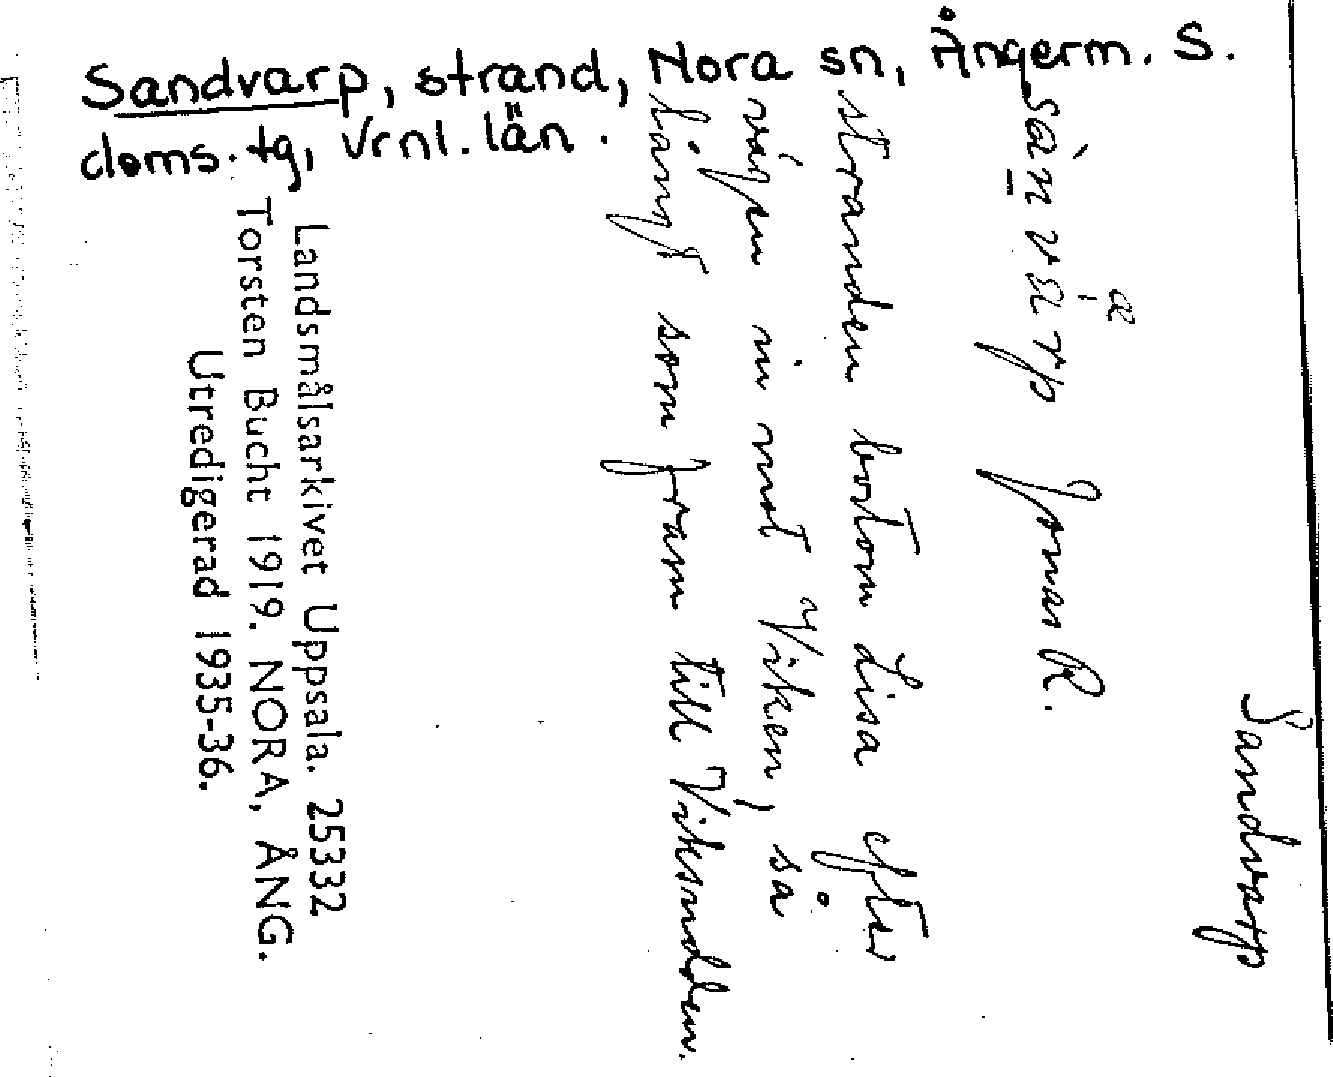 Sandvarp, strand, Nora sn, Ångerm. S.
doms. tg, Vrnl. län.
Sandvarp
Jonas R.
stranden bortom Lisa efter
vägen in mot Viken, så
långt som fram till Viksudden.
Landsmålsarkivet Uppsala. 25332
Torsten Bucht 1919. NORA, ÅNG.
Utredigerad 1935-36.